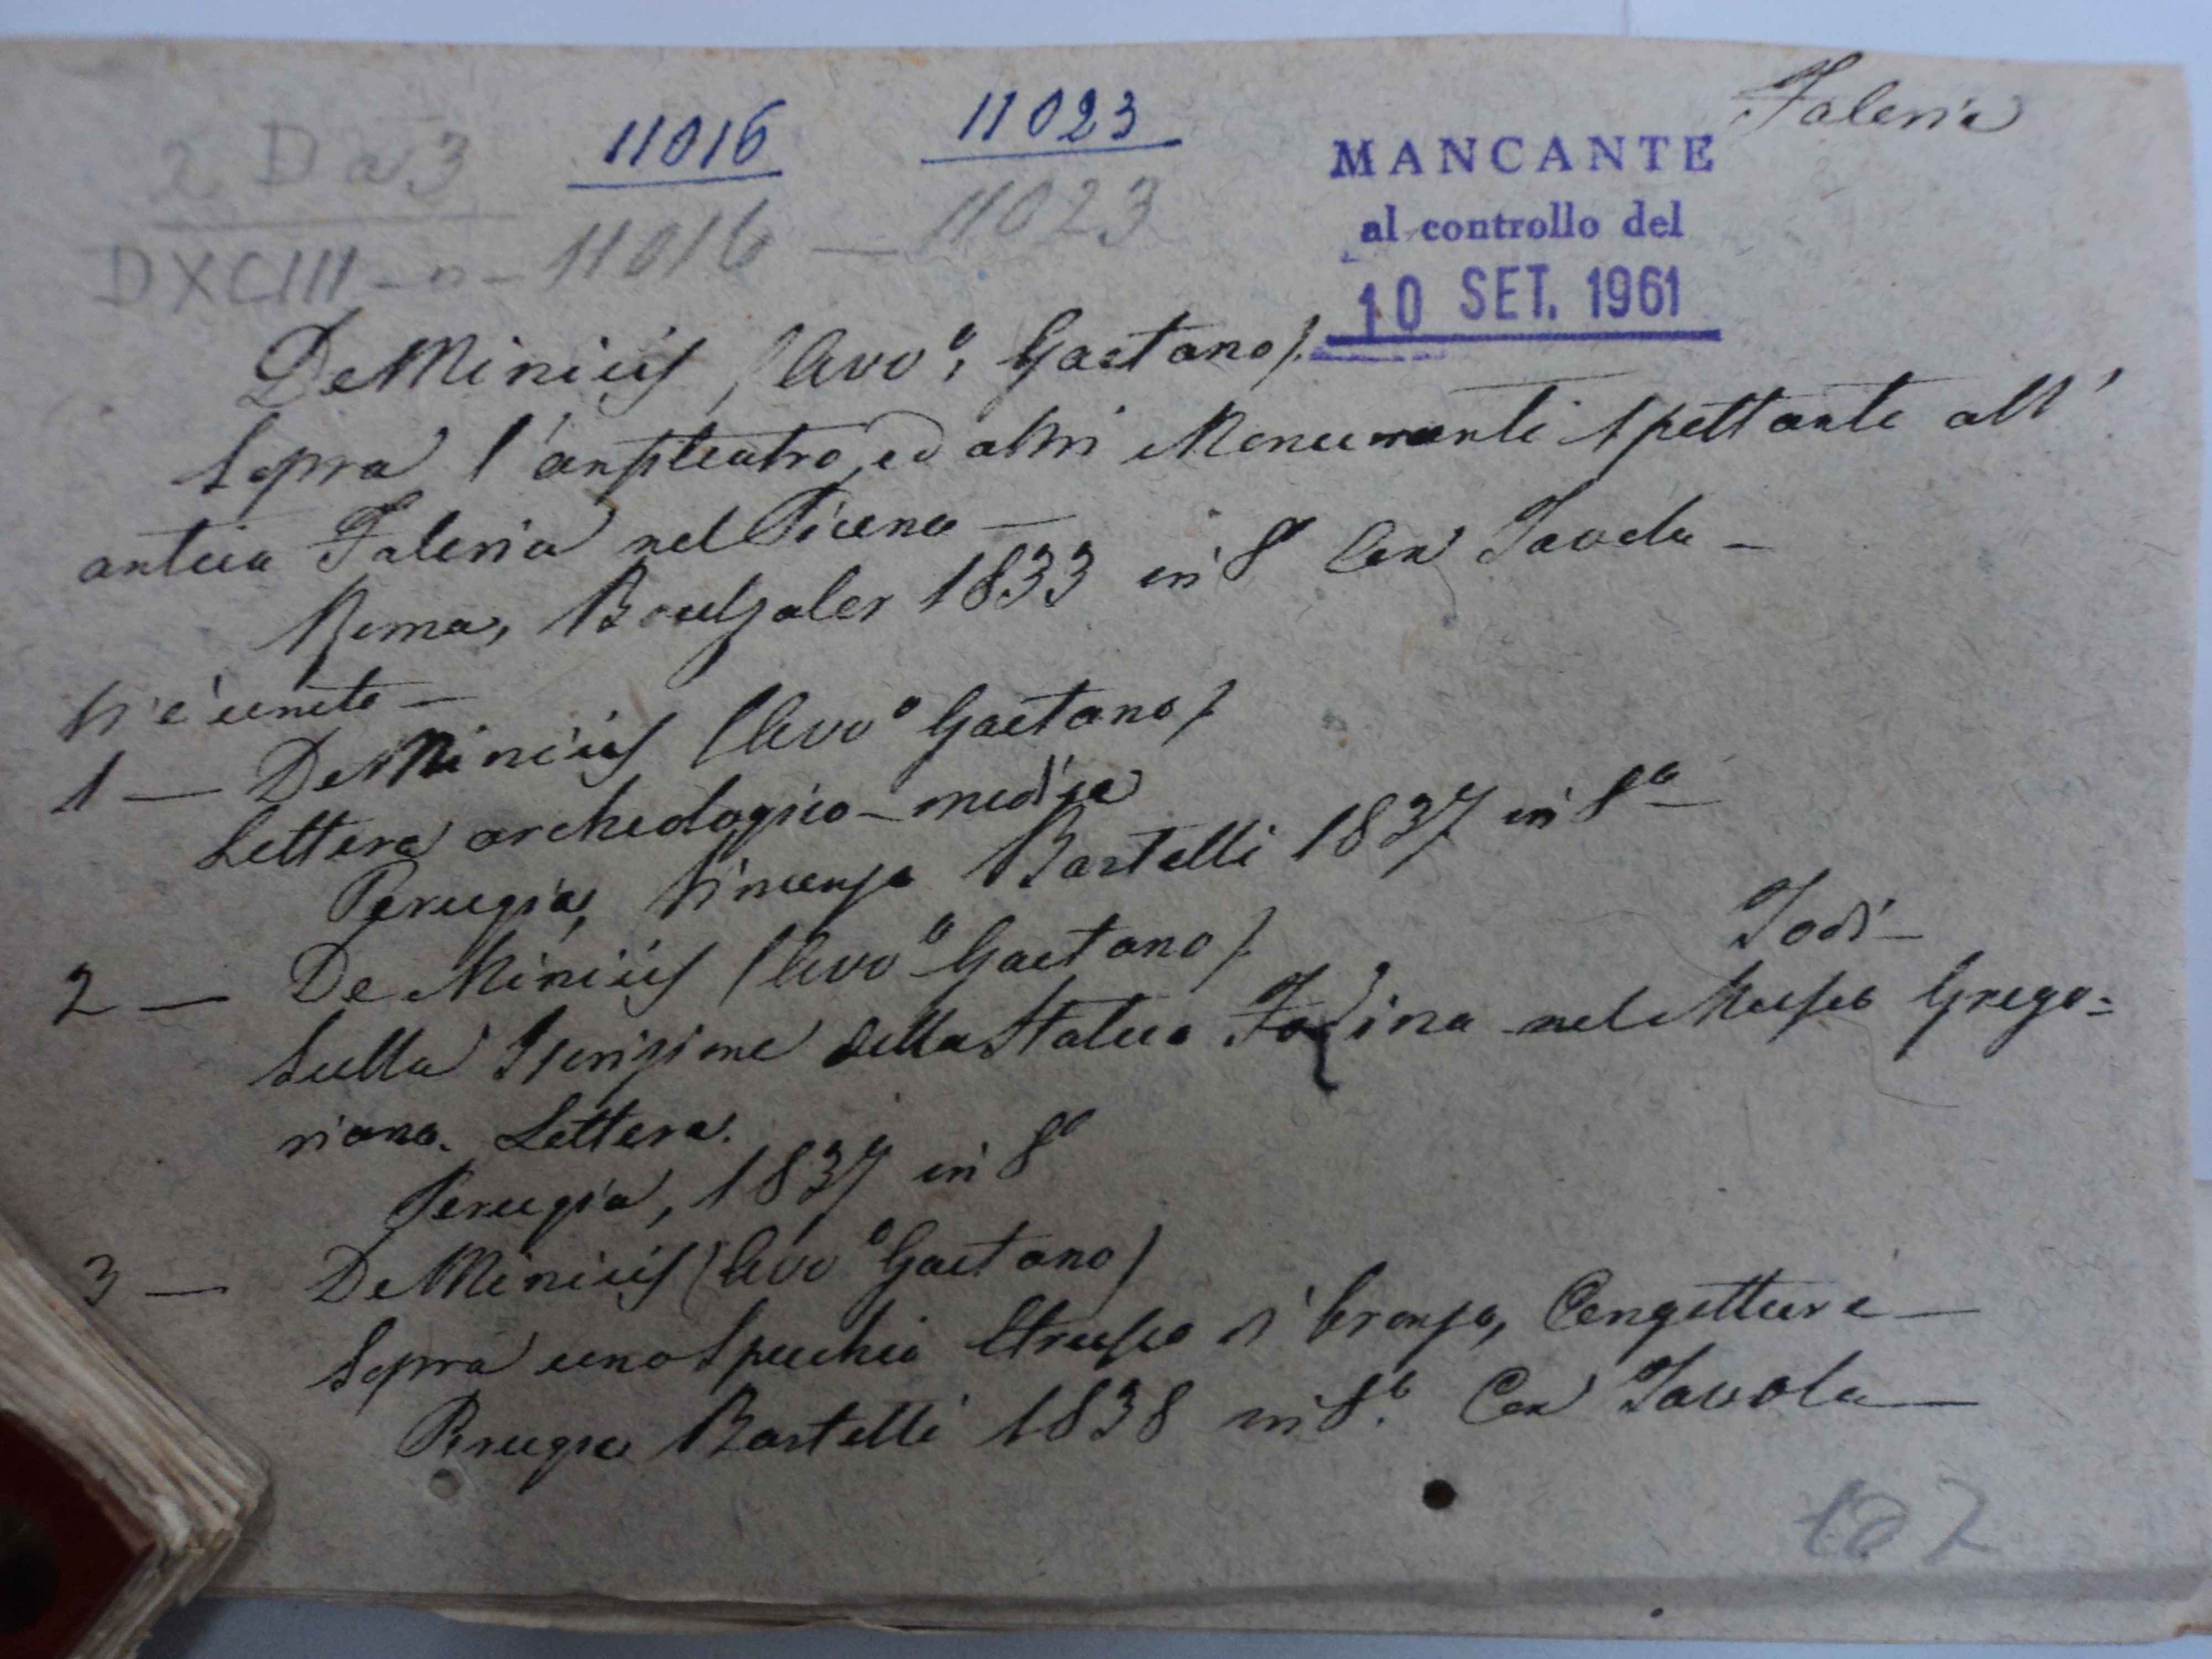 Faleria
2 D a 3
11016
11023
DXCIII - n - 11016 — 11023
MANCANTE
al controllo del
10 SET. 1961
De Minicis (Avvº Gaetano).
Sopra l'anfiteatro, ed altri Monumenti spettante all'
antica Faleria nel Piceno —
Roma, Boulzaler 1833 in 8º Con Tavola —
Vi è unito —
1 — De Minicis (Avvº Gaetano)
Lettera archeologico-medica
Perugia, Vincenzo Bartelli 1837 in 8º —
Todi —
2 — De Minicis (Avvº Gaetano).
Sulla Iscrizione della Statua Todina nel Museo Grego=
riano. Lettera.
Perugia, 1837 in 8º
3 — De Minicis (Avvº Gaetano)
Sopra uno Specchio Etrusco di bronzo, Congetture —
Perugia Bartelli 1838 in 8º. Con Tavola —